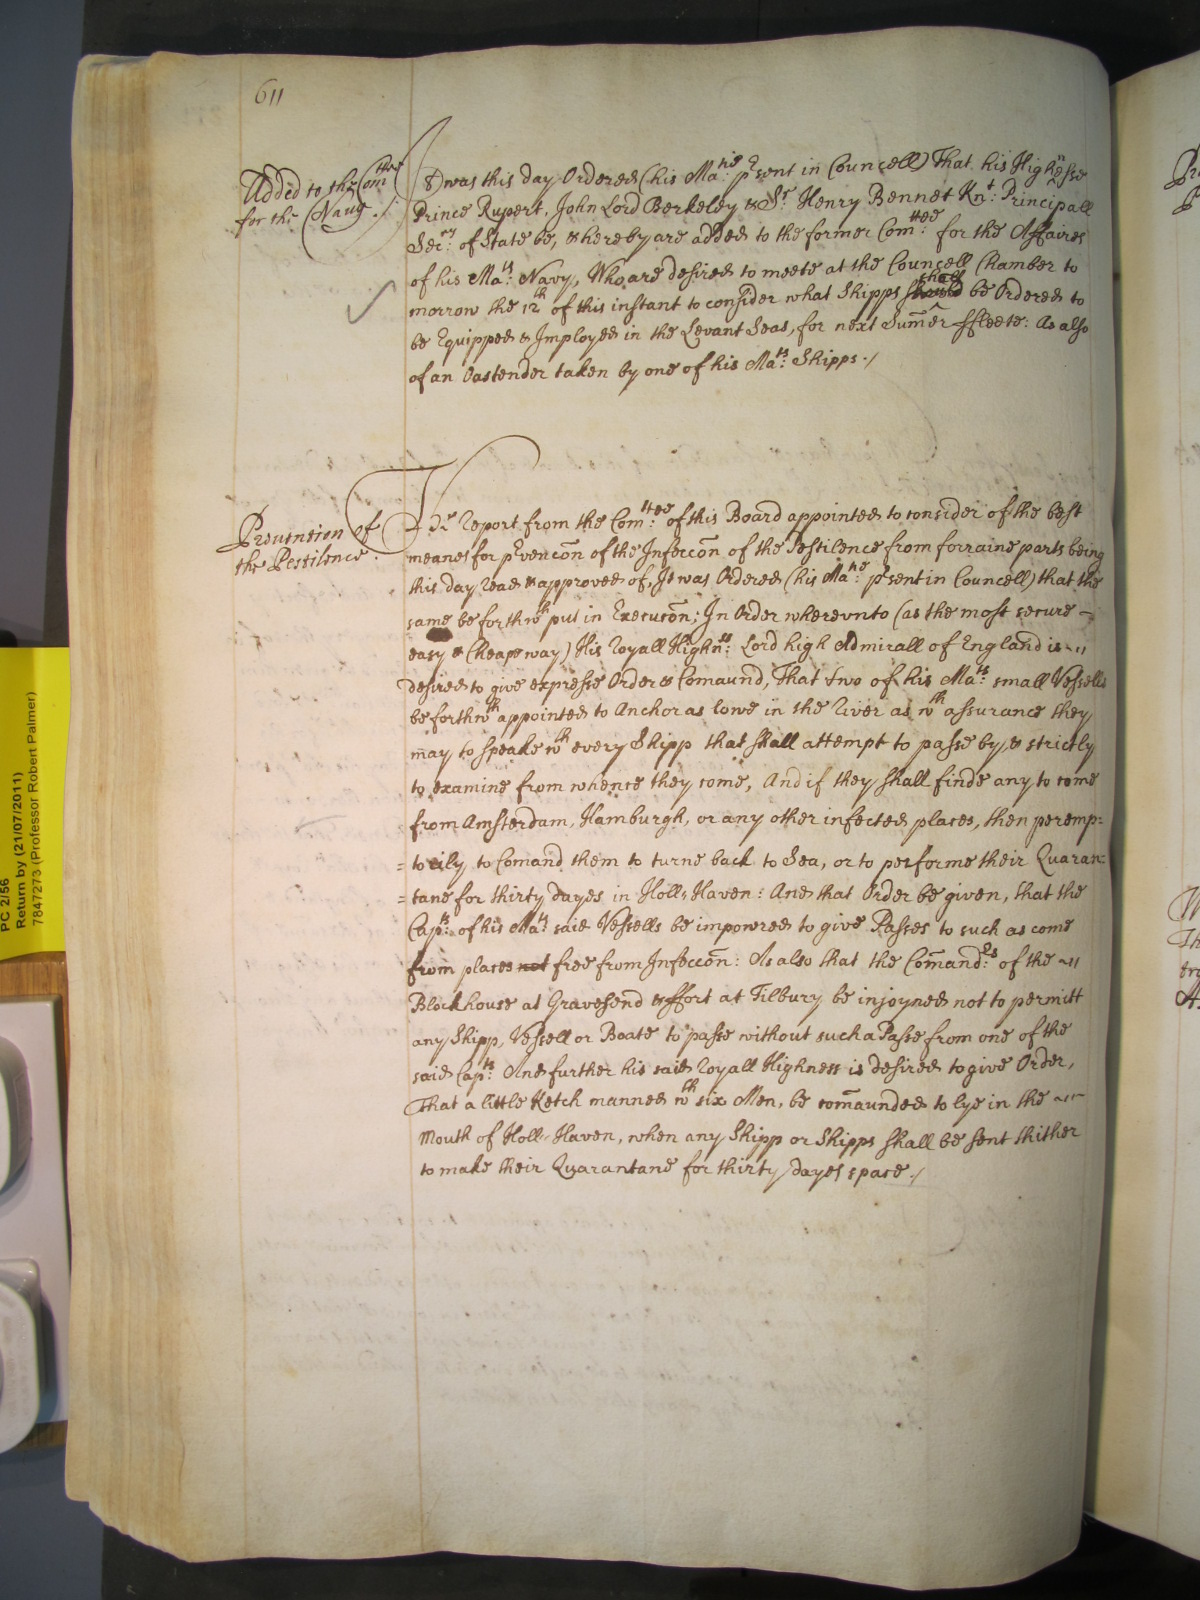 611
Added to the Com:ttee
for the Navy ./
It was this day Ordered (his Ma:tie p̃sent in Councell) That his Highnesse
Prince Rupert, John Lord Berkeley & Sr. Henry Bennet Knt. Principall
Sec:ry of State be, & hereby are added to the former Com:ttee for the Affaires
of his Ma:ts Navy, Who are desired to meete at the Councell Chamber to
morrow the 12th of this instant to consider what Shipps should shall be Ordered to
be Equipped & Imployed in the Levant Seas, for next Sum̃er ffleete: As also
of an Oastender taken by one of his Ma:ts Shipps ./
Prevention of
the Pestilence.
The Report from the Com:ttee of this Board appointed to consider of the best
meanes for p̃vencõn of the Infeccõn of the Pestilence from forraine parts being
this day read & approved of, It was Ordered (his Ma:tie p̃sent in Councell) that the
same be forthwth put in Execucõn; In Order wherevnto (as the most secure
easy & Cheape way) His Royall Highn:ss Lord high Admirall of England is
desired to give expresse Order & Comaund, That two of his Ma:ts small Vessells
be forthwth appointed to Anchor as lowe in the River as wth assurance they
may to speake wth every Shipp that shall attempt to passe by, & strictly
to examine from whence they come, And if they shall finde any to come
from Amsterdam, Hamburgh, or any other infected places, then peremp=
=torily to Comand them to turne back to Sea, or to performe their Quaran=
=tane for thirty dayes in Holl-Haven: And that Order be given, that the
Cap:ts of his Ma:ts said Vessells be impowred to give Passes to such as come
from places not free from Infeccõn: As also that the Com̃and:rs of the
Blockhouse at Gravesend & ffort at Tilbury be injoyned not to permitt
any Shipp, Vessell or Boate to passe without such a Passe from one of the
said Cap:ts And further his said Royall Highness is desired to give Order,
That a little Ketch manned wth six Men, be com̃aunded to lye in the
Mouth of Holl-Haven, when any Shipp or Shipps shall be sent thither
to make their Quarantane for thirty dayes space ./
PC 2/56
Return by (21/07/2011)
7847273 (Professor Robert Palmer)